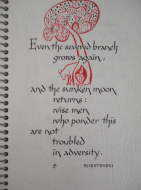 Even the severed branch
grows again.
and the sunken moon
returns:
wise men
who ponder this
are not
troubled
in adversity.
BHARTRHARI